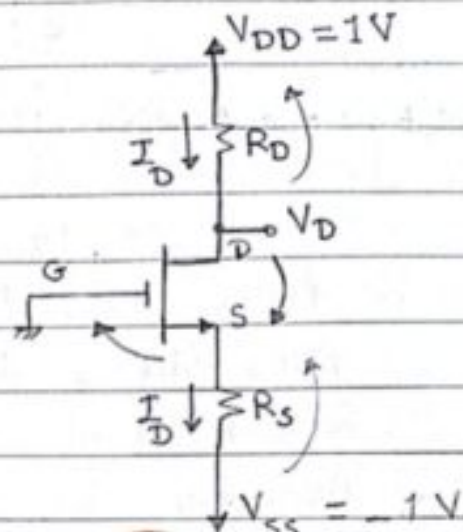 V_DD = 1V
I_D R_D
V_D
D
G
S
I_D R_S
V_SS = -1V